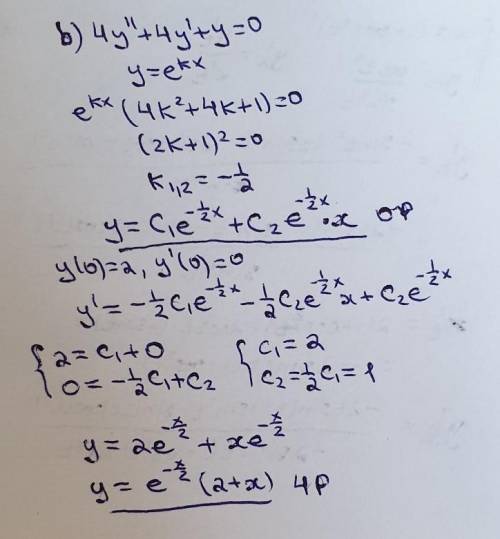 b) 4y''+4y'+y=0
y=e^{kx}
e^{kx}(4k²+4k+1)=0
(2k+1)²=0
k_{1,2}=-\frac{1}{2}
y=C₁e^{-\frac{1}{2}x}+C₂e^{-\frac{1}{2}x}·x ОР
y(0)=2, y'(0)=0
y'=-\frac{1}{2}C₁e^{-\frac{1}{2}x}-\frac{1}{2}C₂e^{-\frac{1}{2}x}x+C₂e^{-\frac{1}{2}x}
{2=C₁+0 {C₁=2
{0=-\frac{1}{2}C₁+C₂ {C₂=\frac{1}{2}C₁=1
y=2e^{-\frac{x}{2}}+xe^{-\frac{x}{2}}
y=e^{-\frac{x}{2}}(2+x) ЧР